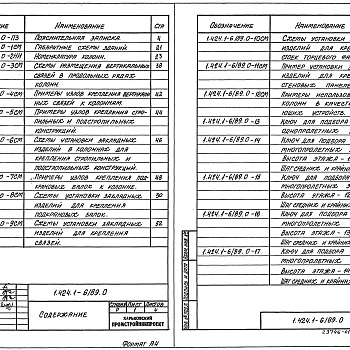 Наименование
Стр
0-ПЗ Пояснительная записка. 4
0-1СМ Габаритные схемы зданий. 21
0-2НИ Номенклатура колонн. 23
0-3СМ Схемы размещения вертикальных 38
связей в продольных рядах
колонн.
0-4СМ Примеры узлов крепления вертикаль-
ных связей к колоннам.
0-5СМ Примеры узлов крепления стро- 44
пильных и подстропильных
конструкций.
0-6СМ Схемы установки закладных 46
изделий в колоннах для
крепления стропильных и
подстропильных конструкций.
Примеры узлов крепления под- 48
крановых балок к колонне.
0-8СМ Схемы установки закладных 50
изделий для крепления
подкрановых балок.
0-9СМ Схемы установки закладных 52
изделий для крепления
связей.
1.424.1-6/89.0
Содержание
Стадия Лист Листов
Р 1
Харьковский
Промстройниипроект
Формат А4
Обозначение
Наименование
1.424.1-6/89.0-10СМ Схемы установки
изделий для кре
стоек торцевого фа
1.424.1-6/89.0-11СМ Пример установки
изделий для креп
стеновых панеле
1.424.1-6/89.0-12СМ Примеры использова
колонн в качест
ющих устройств.
1.424.1-6/89.0-13 Ключ для подбора
однопролетных
1.424.1-6/89.0-14 Ключ для подбора
многопролетных
Высота этажа-
Шаг средних и крайни
1.424.1-6/89.0-15 Ключ для подбора
многопролетных
Шаг средних и крайни
1.424.1-6/89.0-16 Ключ для подбора
многопролетных
Высота этажа-13
Шаг средних и крайни
1.424.1-6/89.0-17 Ключ для подбора
многопролетных
Высота этажа-14
Шаг средних и крайни
1.424.1-6/89.0